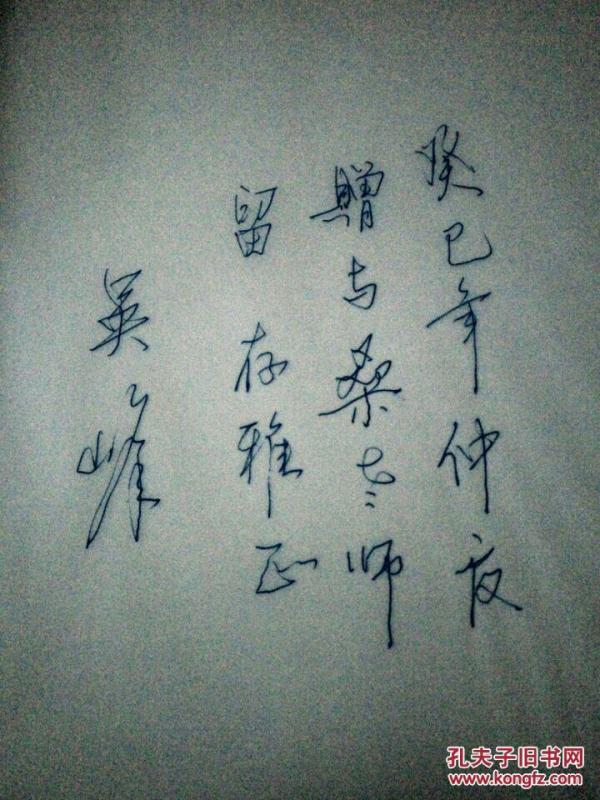 癸巳年仲夏
贈与桑老师
留存雅正
英峰
孔夫子旧书网
www.kongfz.com